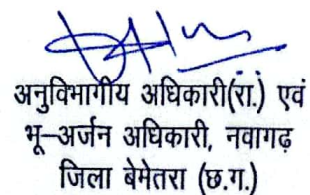 अनुविभागीय अधिकारी(रा.) एवं
भू–अर्जन अधिकारी, नवागढ़
जिला बेमेतरा (छ.ग.)